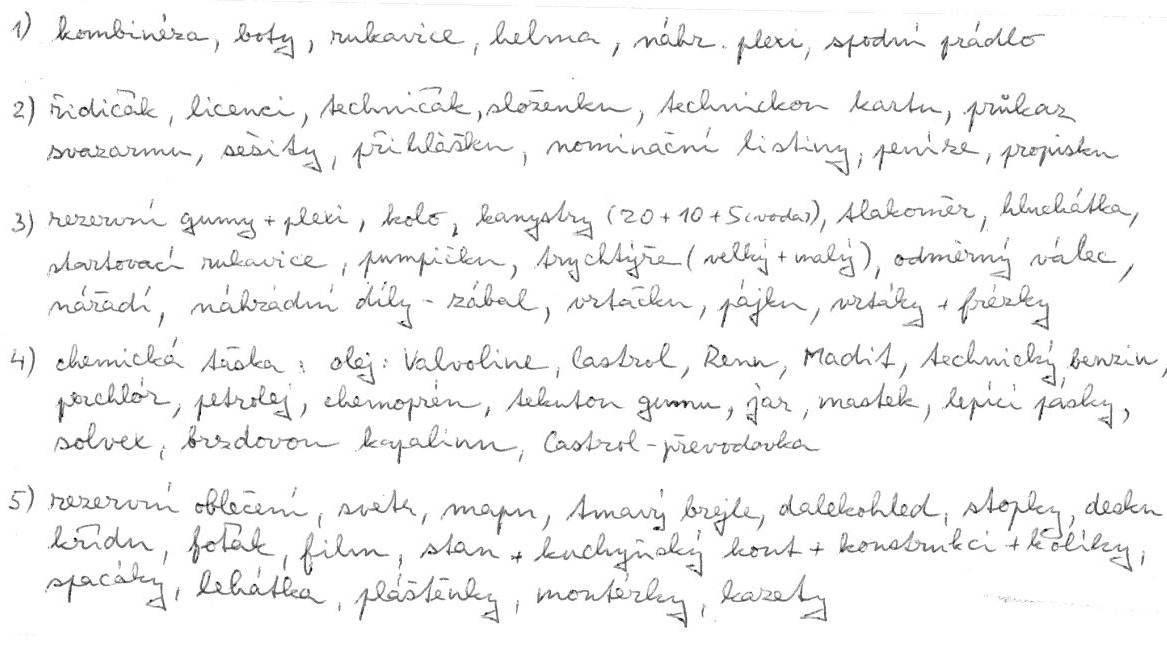 1) kombinéza, boty, rukavice, helma, náhr. plexi, spodní prádlo
2) řidičák, licenci, techničák, složenku, technickou kartu, průkaz
svazarmu, sešity, přihlášku, nominační listiny, peníze, propisku
3) rezervní gumy + plexi, kolo, kanystry (20 + 10 + 5 (voda)), tlakoměr, hluchátka,
startovací rukavice, pumpičku, trychtýře (velký + malý), odměrný válec,
nářadí, náhradní díly - zábal, vrtačku, pájku, vrtáky + frézky
4) chemická taška: olej: Valvoline, Castrol, Renn, Madit, technický benzin,
perchlór, petrolej, chemoprén, tekutou gumu, jar, mastek, lepící pásky,
solvex, brzdovou kapalinu, Castrol - převodovka
5) rezervní oblečení, svetr, mapu, tmavý brejle, dalekohled, stopky, desku
křídu, foťák, film, stan + kuchyňský kout + konstrukci + kolíky,
spacáky, lehátka, pláštěnky, montérky, kazety